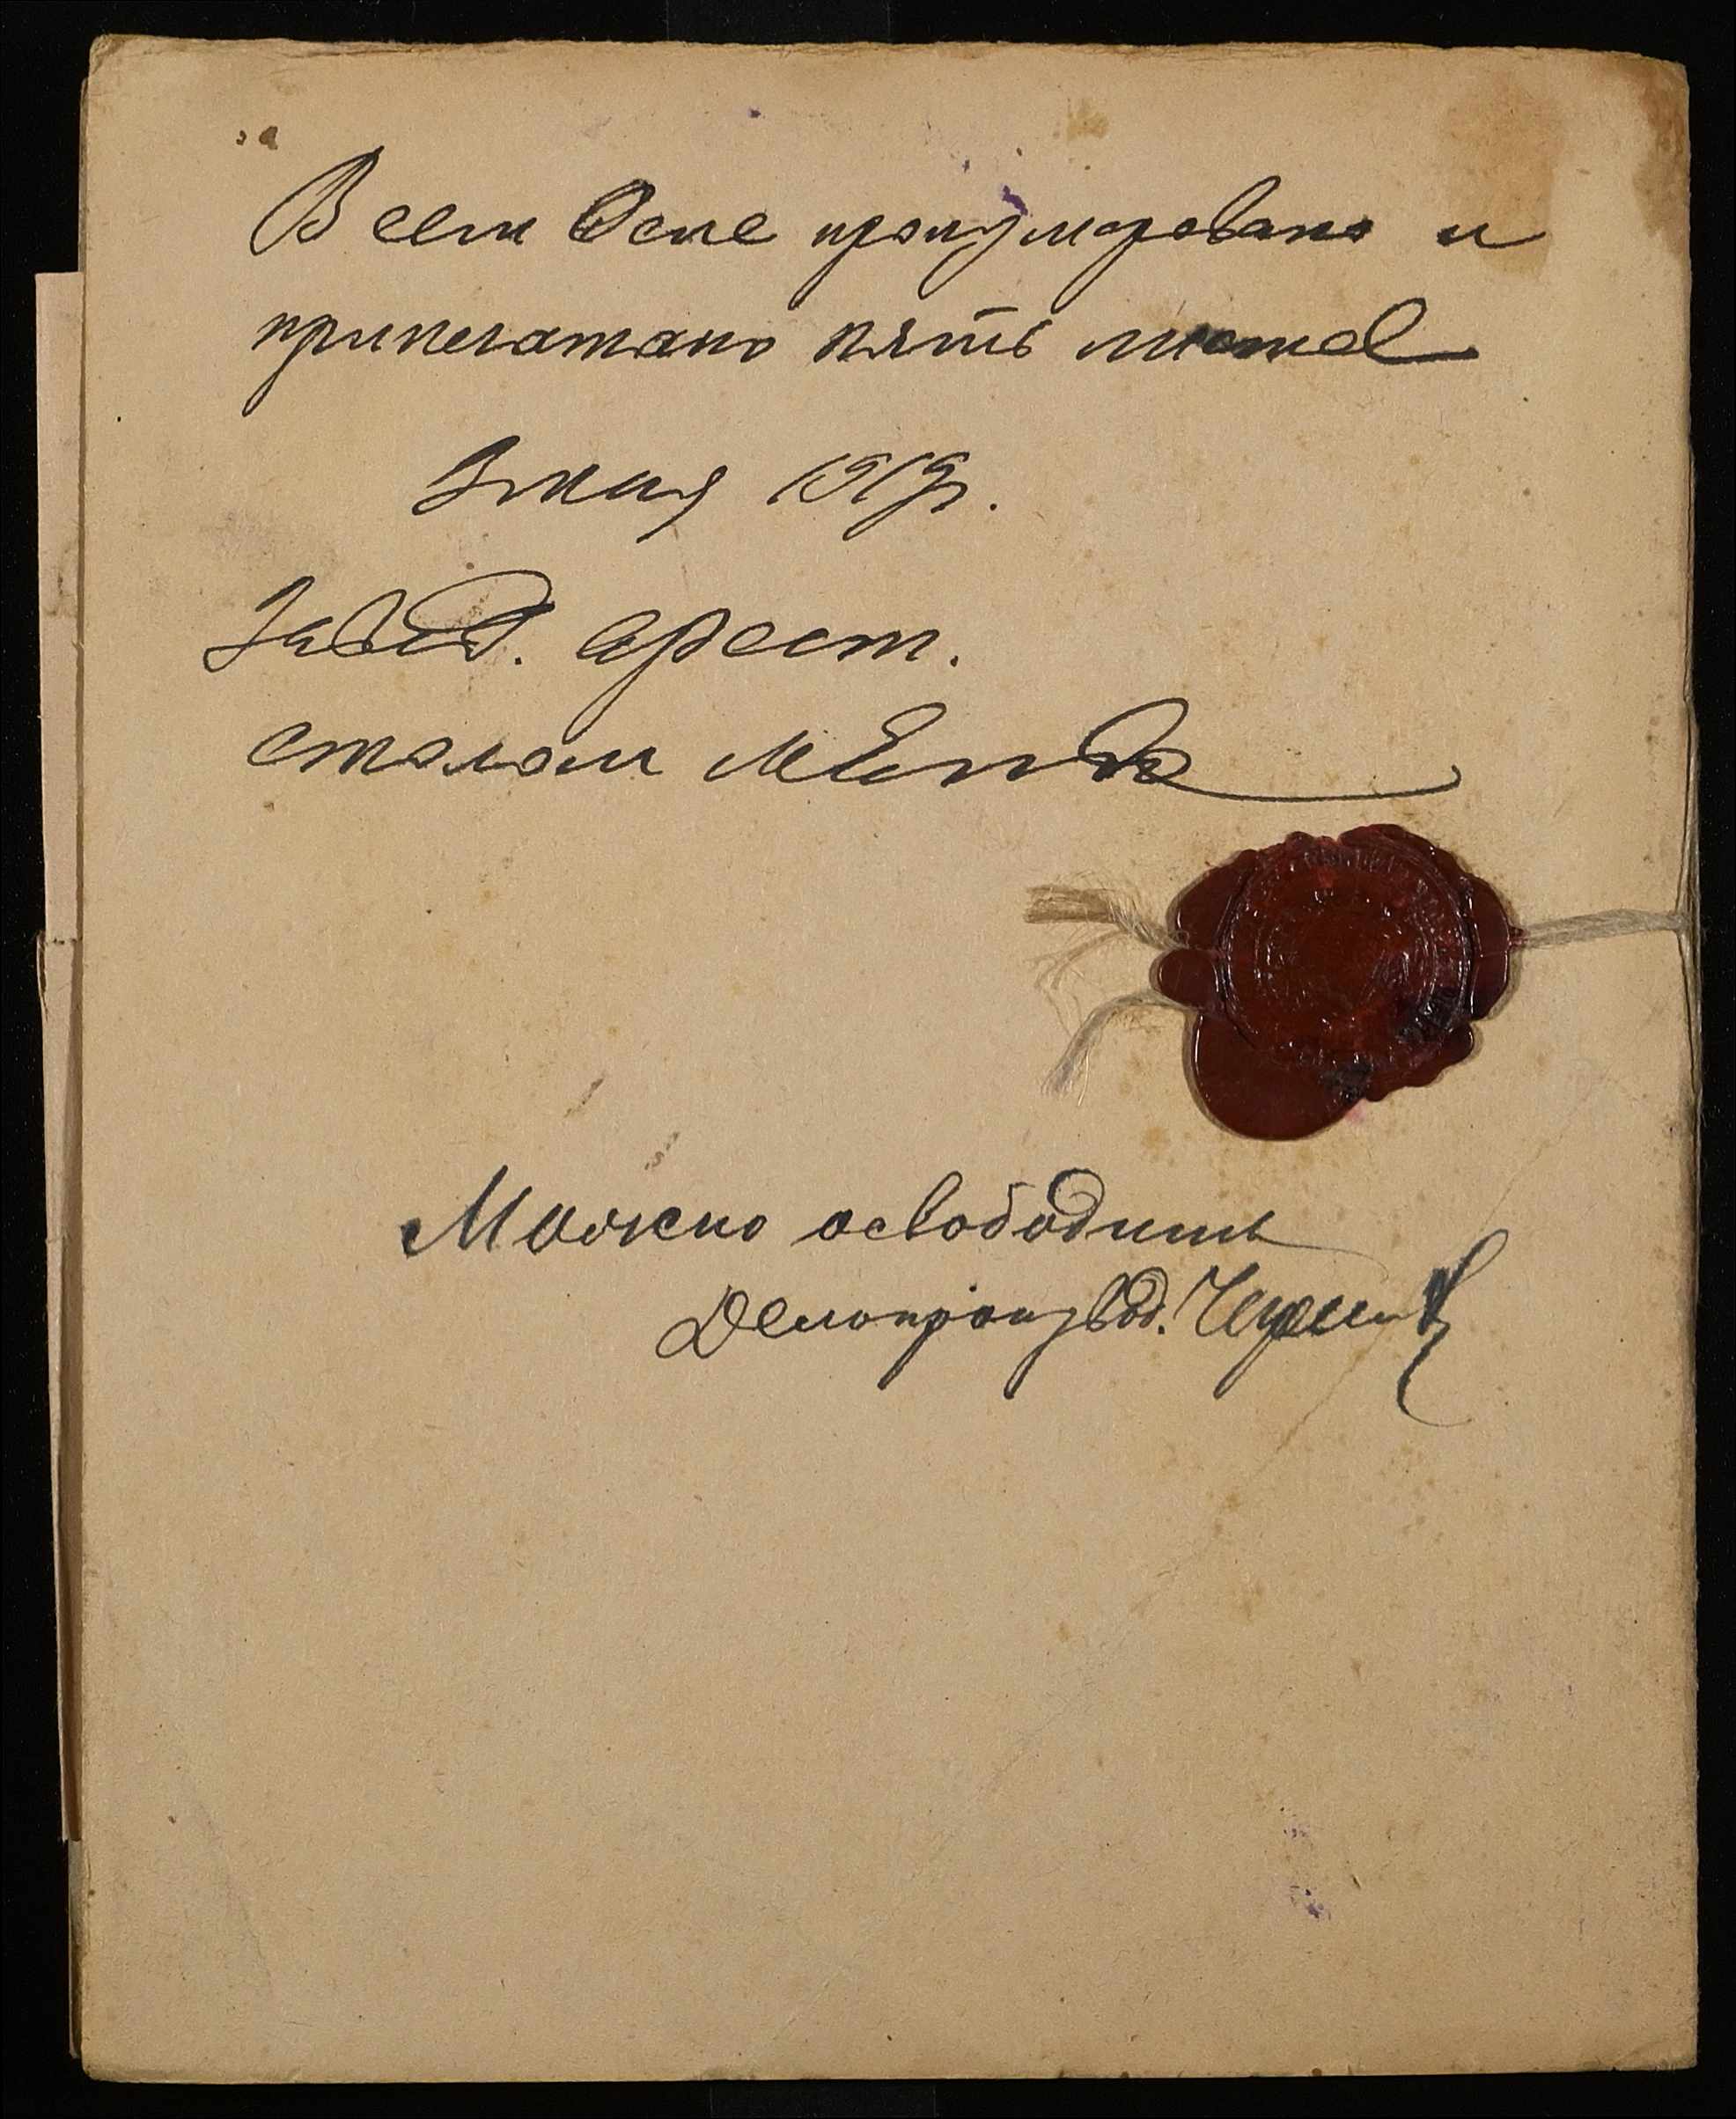 В сем деле пронумеровано и
припечатано пять листов
3 мая 1919 г.
Завед. арест.
столом
Можно освободить
Делопроизвод.